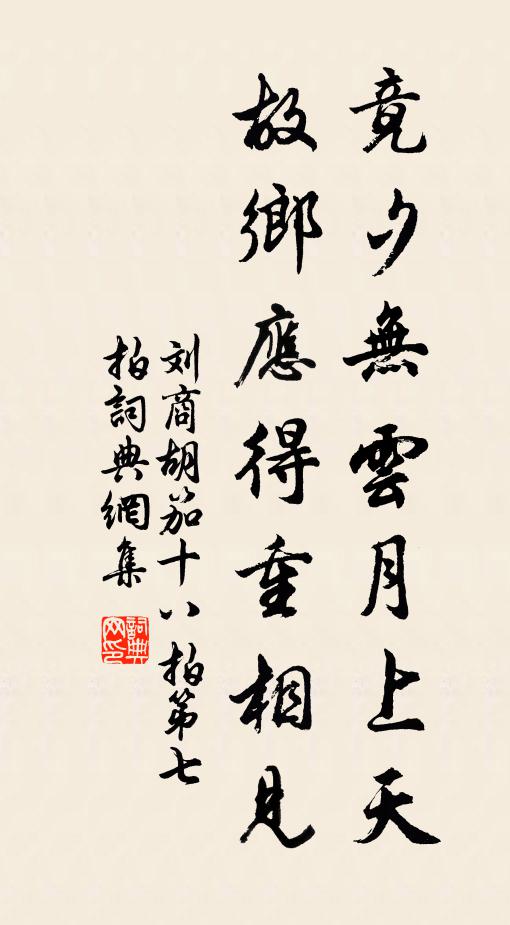 竟夕無雲月上天
故鄉應得重相見
刘商胡笳十八拍第七
拍詞典網集
詞典网印